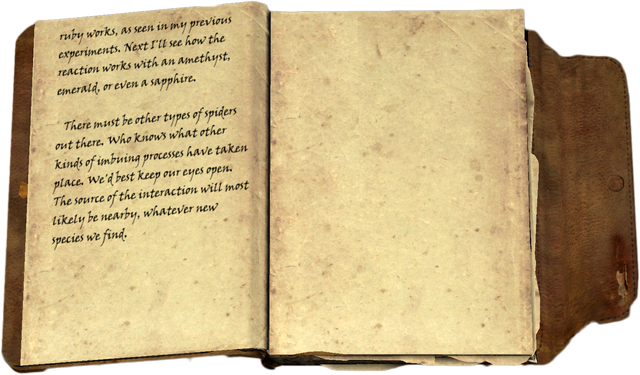 ruby works, as seen in my previous
experiments. Next I'll see how the
reaction works with an amethyst,
emerald, or even a sapphire.
There must be other types of spiders
out there. Who knows what other
kinds of imbuing processes have taken
place. We'd best keep our eyes open.
The source of the interaction will most
likely be nearby, whatever new
species we find.